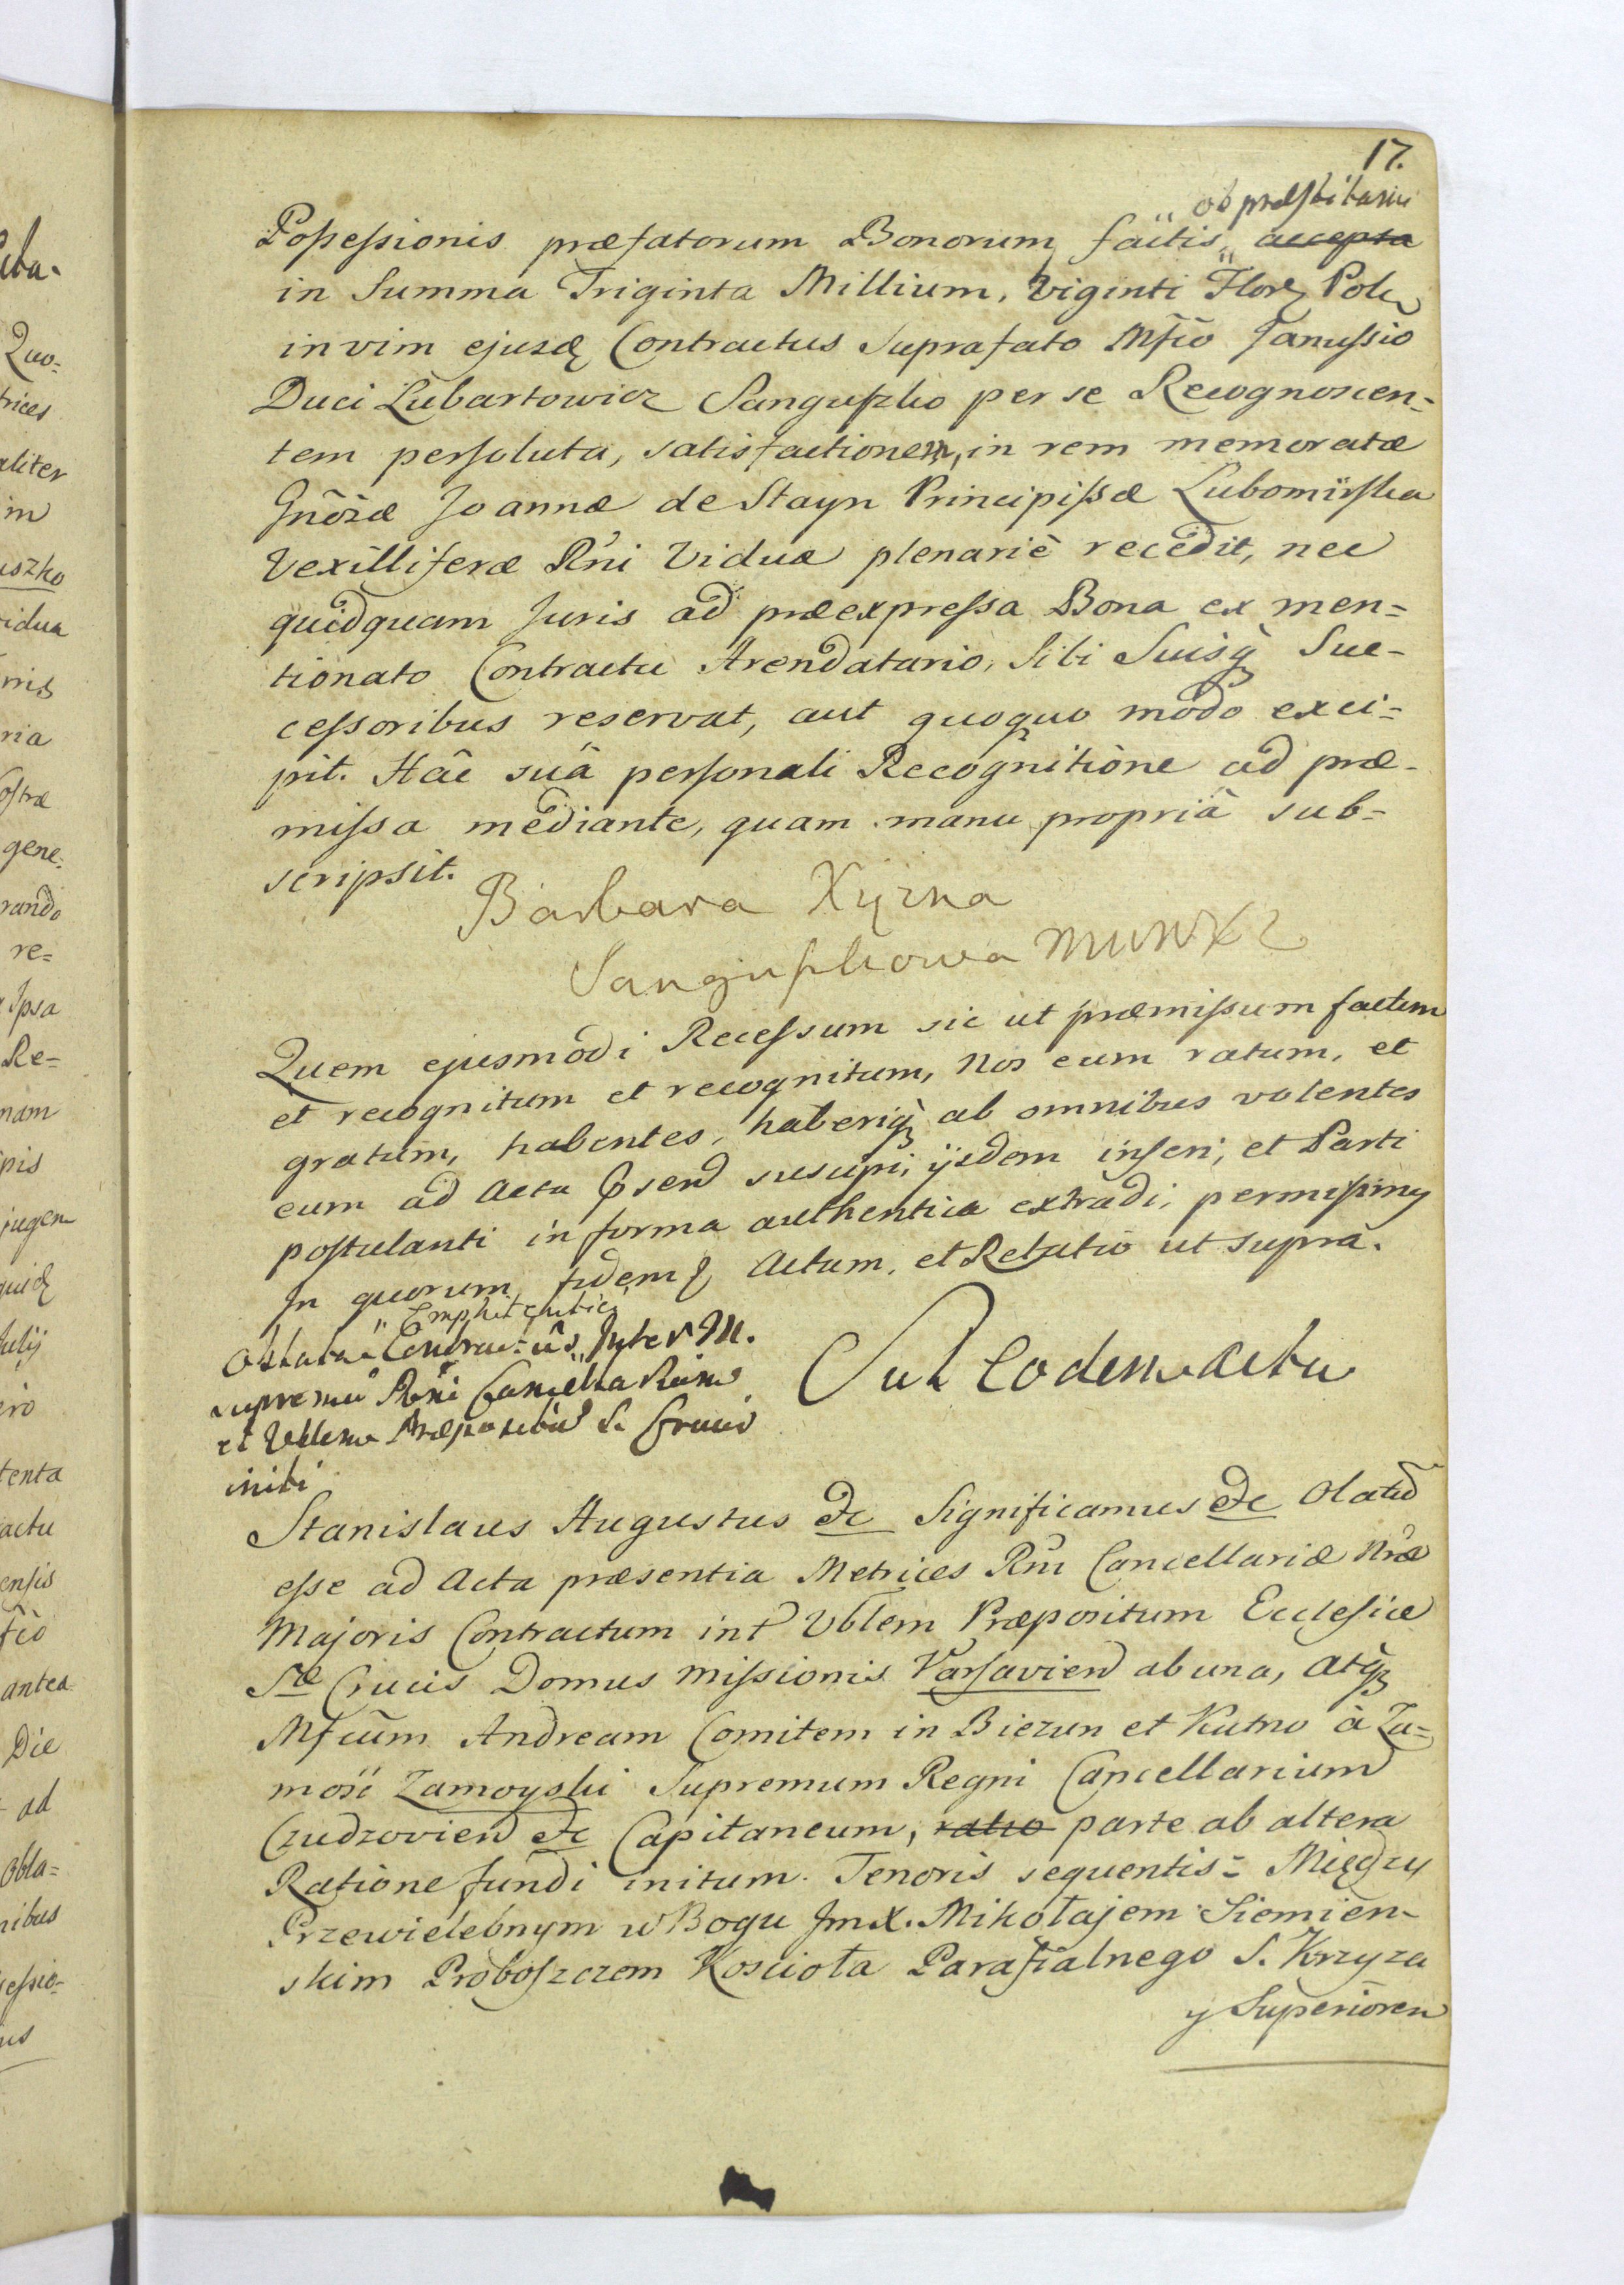 17.
ob præstitariu
Possessionis præfatorum Bonorum factis, accepta
in Summa Triginta Millium, Viginti Flor Pol
in vim ejusd Contractus Suprafato Mfco Janussio
Duci Lubartowicz Sanguszko per se Recognoscen=
tem persoluta, satisfactionem, in rem memoratæ
Gnosæ Joannæ de Stayn Principissæ Lubomirska
Vexilliferæ Rni Viduæ plenariè recedit, nec
quidquam Juris ad præexpressa Bona ex men=
tionato Contractu Arendatario, Sibi Suisq Suc-
cessoribus reservat, aut quoquo modo exci=
pit. Hâc suâ personali Recognitione ad præ-
missa mediante, quam manu propriâ sub=
scripsit.
Barbara Xżna
Sanguszkowa MWWXL
Quem ejusmodi Recessum sic ut præmissum factum
et recognitum et recognitum, Nos eum ratum, et
gratum, habentes, haberiq ab omnibus volentes
eum ad Acta Psend suscipi, ijsdem inseri, et Parti
postulanti in forma authentica extradi, permisimus
In quorum fidem Actum, et Relatio ut suprà.
Emphiteutici
Oblata Contractûs Inter M.
supremu Rni Cancella Rium
et Vblem Præpositu S. Crucis
initi
Sub Eodem Actu
Stanislaus Augustus &c Significamus &c Olatu
esse ad Acta præsentia Metrices Rni Cancellariæ Nræ
Majoris Contractum int Vblem Præpositum Ecclesiæ
Stæ Crucis Domus Missionis Varsavien ab una, atq
Mfcum Andream Comitem in Biezun et Kutno à Za=
mość Zamoyski Supremum Regni Cancellarium
Czudzovien &c Capitaneum, ratio parte ab altera
Ratione fundi initum. Tenoris sequentis= Między
Przewielebnym w Bogu JmX. Mikołajem Siemien-
skim Proboszczem Kosciola Parafialnego S. Krzyza
y Superiorem